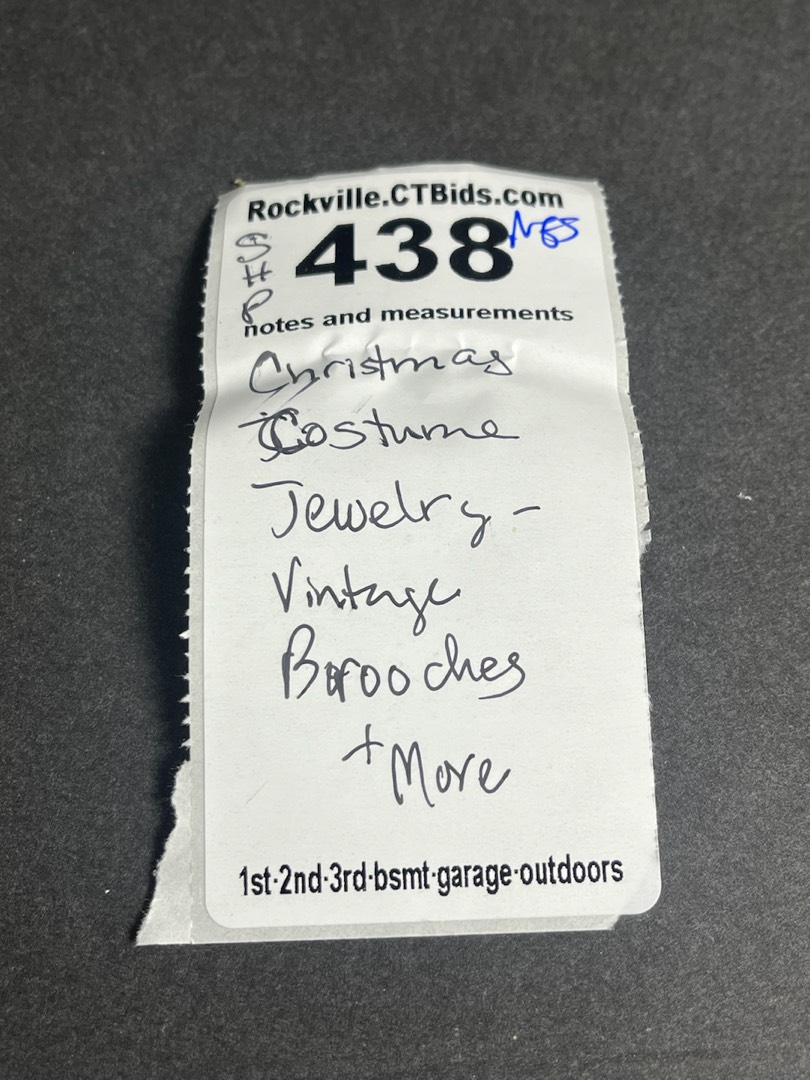 Rockville.CTBids.com
438
notes and measurements
Christmas
Costume
Jewelry -
Vintage
Brooches
+ More
1st·2nd·3rd·bsmt·garage·outdoors